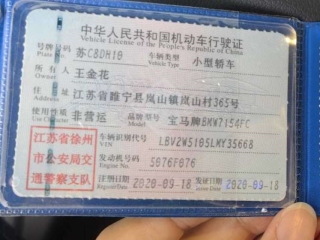 中华人民共和国机动车行驶证
Vehicle License of the People's Republic of China
号牌号码 苏C8DH10 车辆类型 小型轿车
Plate No. Vehicle Type
所有人 王金花
Owner
住址 江苏省睢宁县岚山镇岚山村365号
Address
使用性质 非营运 品牌型号 宝马牌BMW7154FC
Use Character Model
江苏省徐州 车辆识别代号 LBV2W5105LMY35668
市公安局交 VIN
通警察支队 发动机号码 5076F076
Engine No.
注册日期 2020-09-18 发证日期 2020-09-18
Register Date Issue Date